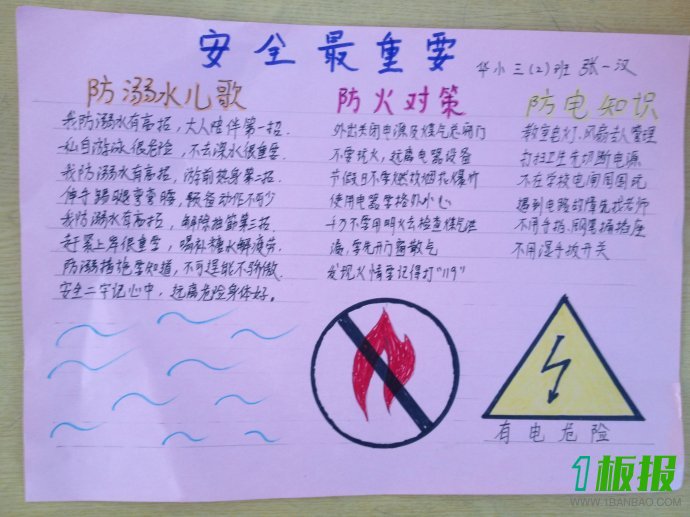 安全最重要
华小三(2)班 张一汉
防溺水儿歌
我防溺水有高招,大人陪伴第一招.
私自游泳很危险,不去深水很重要.
我防溺水有高招,游前热身第二招.
伸手踢腿弯弯腰,预备动作不可少
我防溺水有高招,解除抽筋第三招.
赶紧上岸很重要,喝补糖水解疲劳.
防溺措施要知道,不可逞能不骄傲.
安全二字记心中,远离危险身体好。
防火对策
外出关闭电源及煤气总阀门
不要玩火,远离电器设备
节假日不要燃放烟花爆竹
使用电器要格外小心
千万不要用明火去检查煤气泄
漏,要先开门窗散气
发现火情要记得打"119"
防电知识
教室电灯、风扇专人管理
打扫卫生先切断电源
不在学校电闸周围玩
遇到电器故障先找老师
不用手指、钢笔捅插座
不用湿手拔开关
有电危险
1板报
WWW.1BANBAO.COM